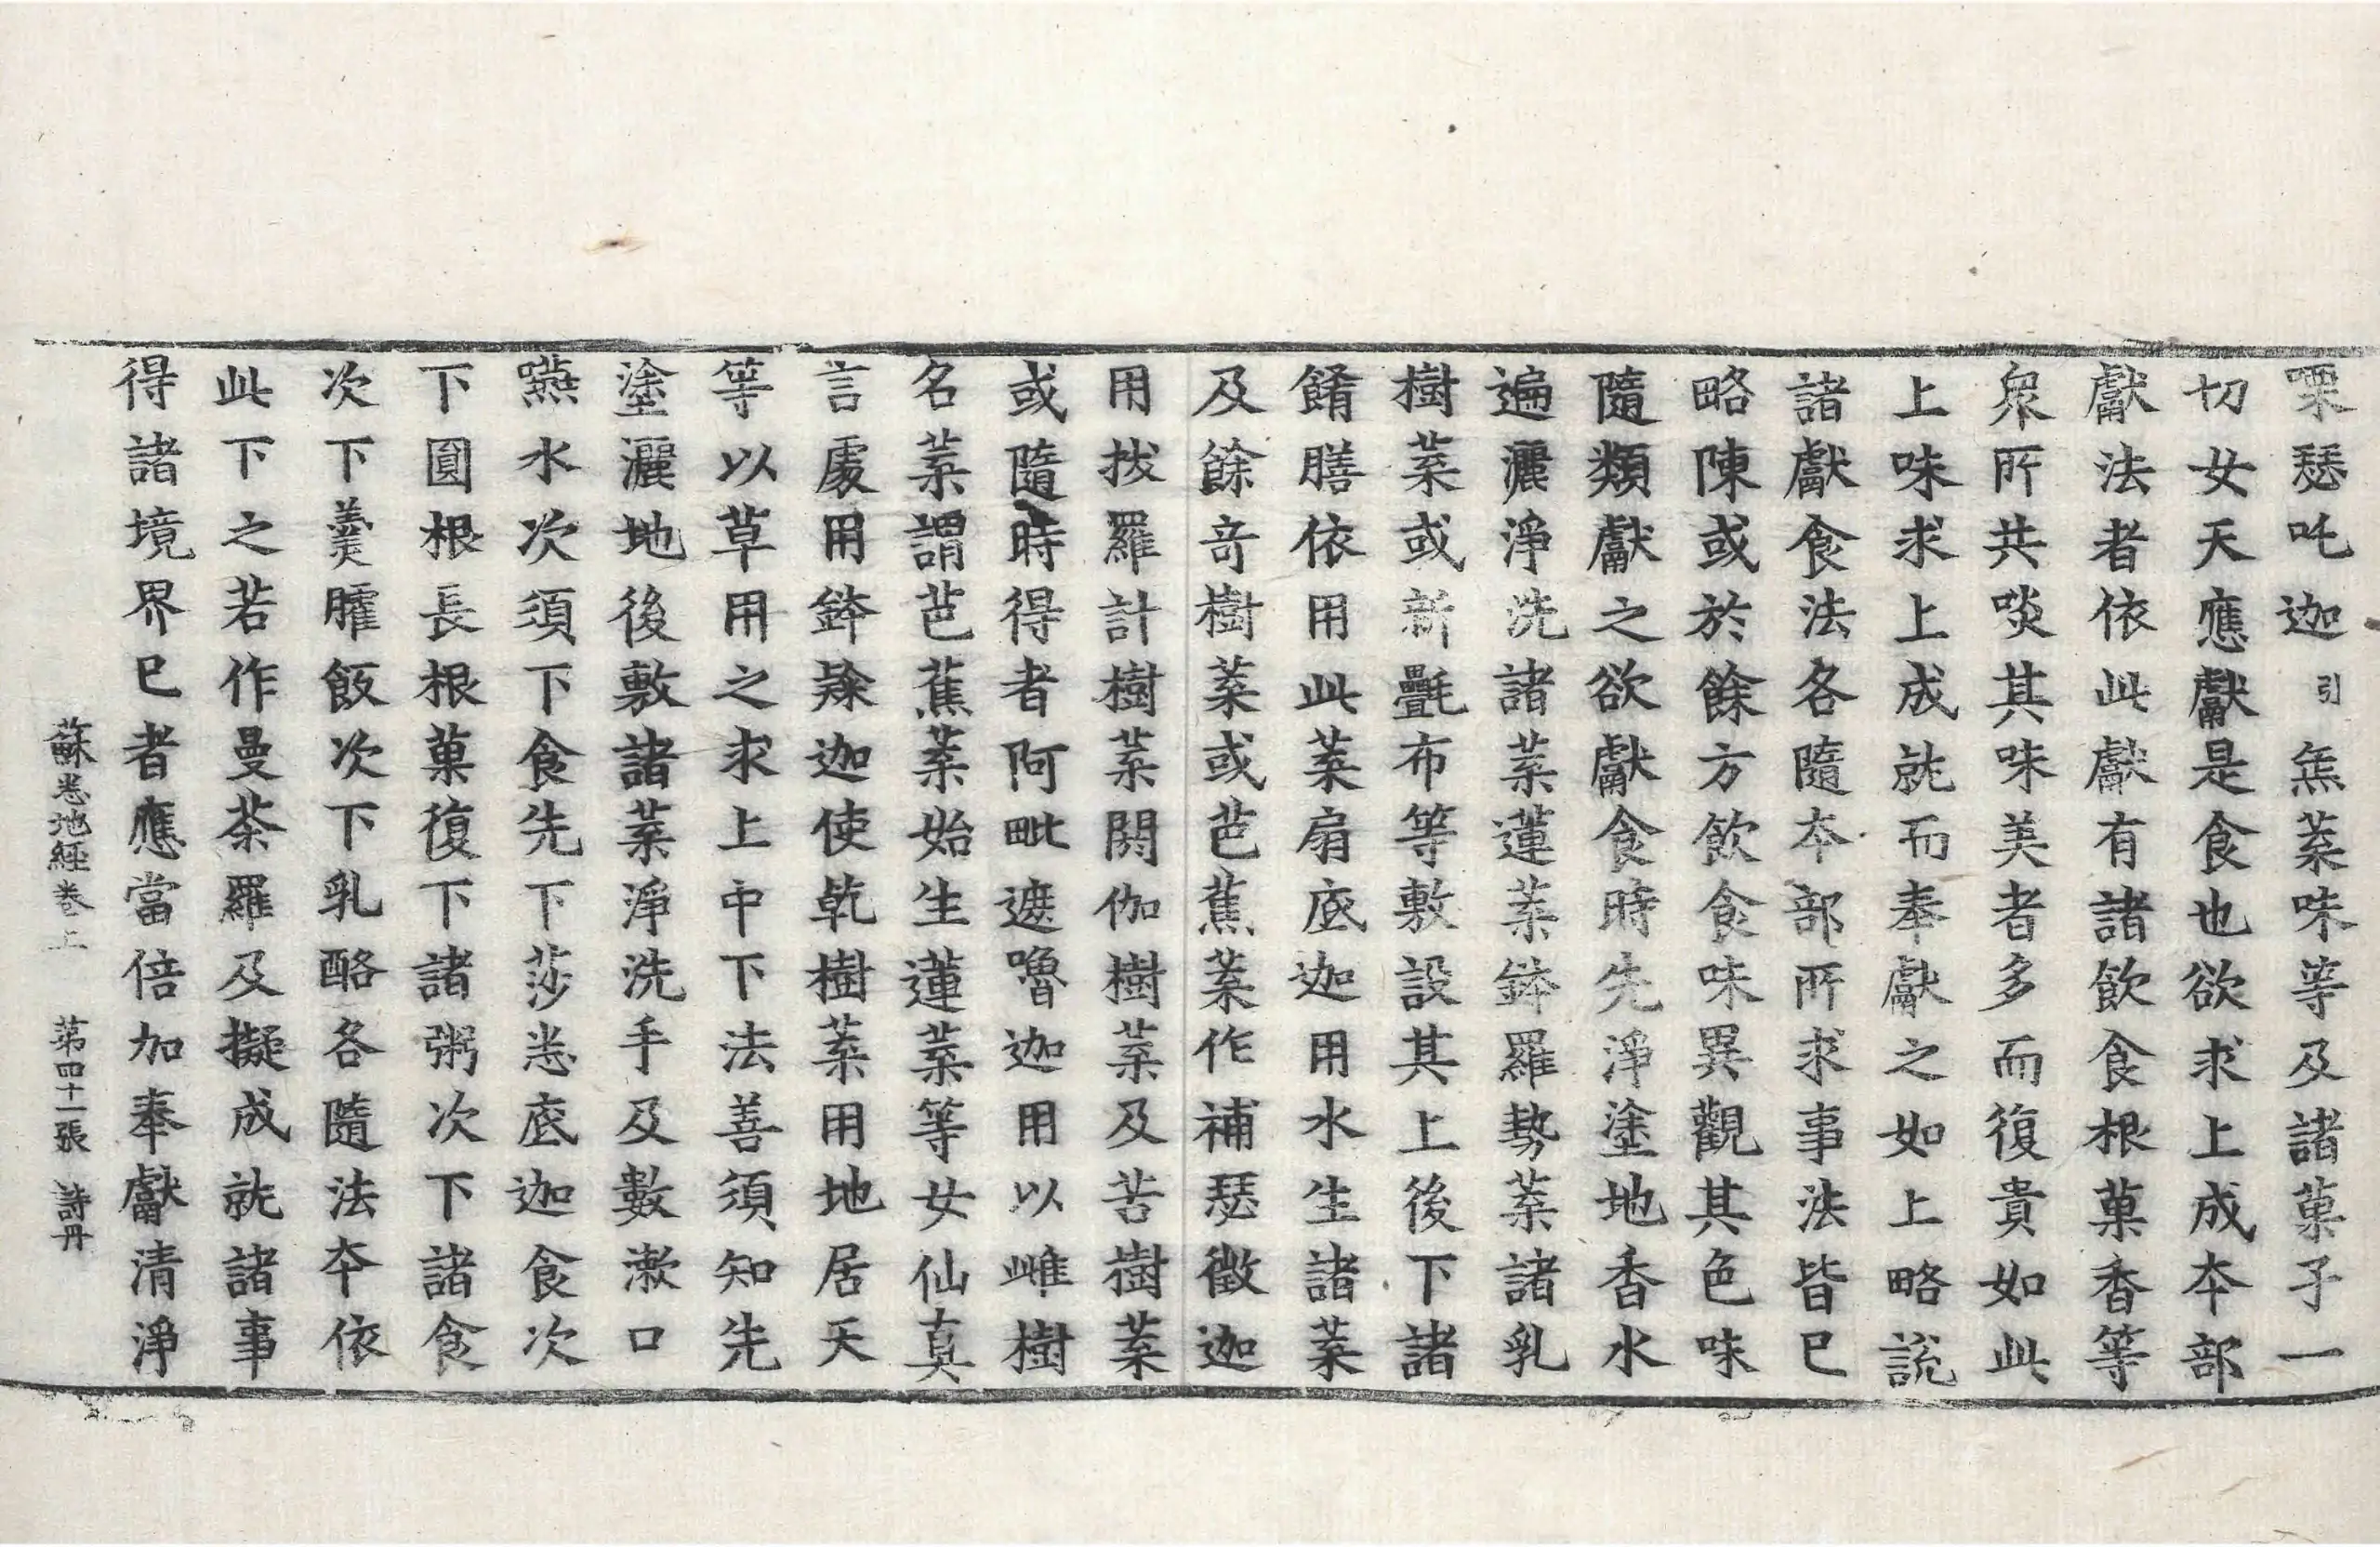 㗚瑟吒迦引無葉味等及諸菓子一
切女天應獻是食也欲求上成夲部
獻法者依此獻有諸飲食根菓香等
衆所共啖其味美者多而復貴如此
上味求上成就而奉獻之如上略説
諸獻食法各隨夲部所求事法皆已
略陳或於餘方飲食味異觀其色味
隨類獻之欲獻食時先淨塗地香水
遍灑淨洗諸葉蓮葉鉢羅勢葉諸乳
樹葉或新㲲布等敷設其上後下諸
餚膳依用此葉扇底迦用水生諸葉
及餘奇樹葉或芭蕉葉作補瑟徵迦
用拔羅計樹葉閼伽樹葉及苦樹葉
或隨時得者阿毗遮嚕迦用以雌樹
名葉謂芭蕉葉始生蓮葉等女仙真
言處用鉢隸迦使乾樹葉用地居天
等以草用之求上中下法善須知先
塗灑地後敷諸葉淨洗手及數漱口
嚥水次須下食先下莎悉底迦食次
下圓根長根菓復下諸粥次下諸食
次下羹臛飯次下乳酪各隨法夲依
此下之若作曼荼羅及擬成就諸事
得諸境界已者應當倍加奉獻清淨
蘇悉地經卷上 第四十一張 詩冊